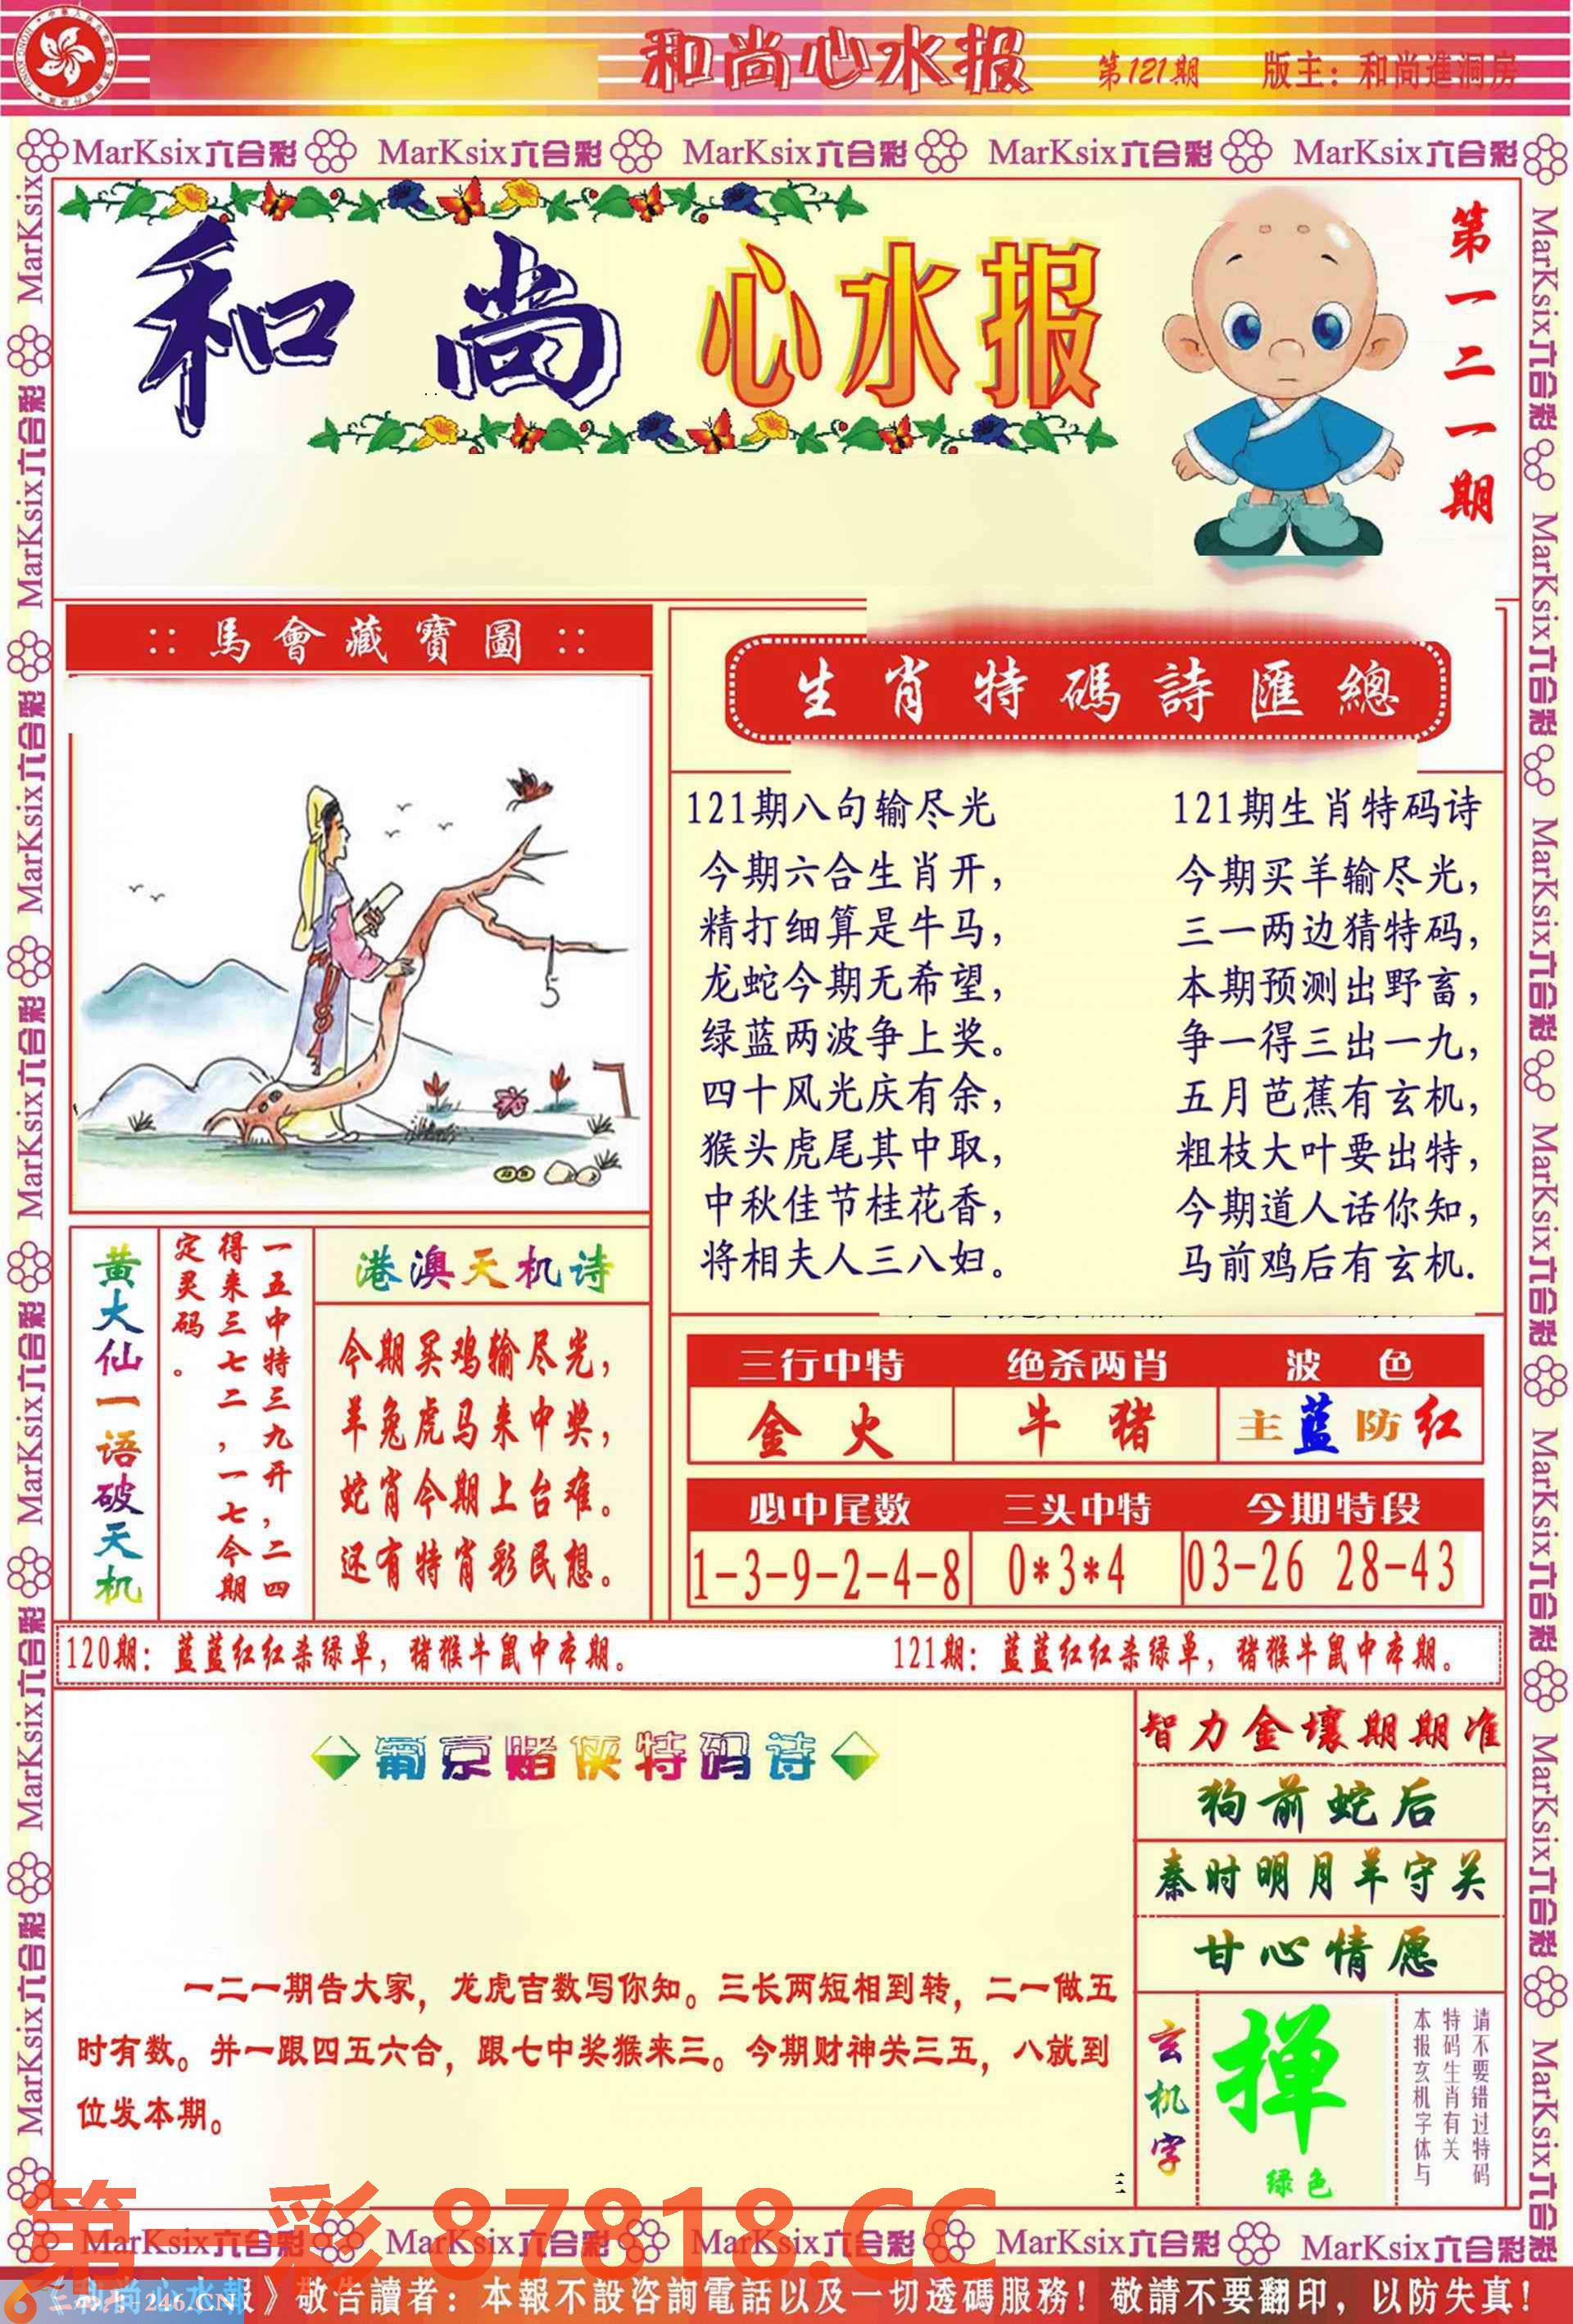 和尚心水报 第121期 版主：和尚進洞房
MarKsix六合彩 MarKsix六合彩 MarKsix六合彩 MarKsix六合彩 MarKsix六合彩
和尚心水报
第一二一期
馬會藏寶圖
5
生肖特碼詩匯總
121期八句输尽光
今期六合生肖开，
精打细算是牛马，
龙蛇今期无希望，
绿蓝两波争上奖。
四十风光庆有余，
猴头虎尾其中取，
中秋佳节桂花香，
将相夫人三八妇。
121期生肖特码诗
今期买羊输尽光，
三一两边猜特码，
本期预测出野畜，
争一得三出一九，
五月芭蕉有玄机，
粗枝大叶要出特，
今期道人话你知，
马前鸡后有玄机.
黄大仙一语破天机
一五中特三九开，二四
得来三七二，一七今期
定灵码。
港澳天机诗
今期买鸡输尽光，
羊兔虎马来中奖，
蛇肖今期上台难。
还有特肖彩民想。
三行中特 绝杀两肖 波色
金火 牛猪 主蓝防红
必中尾数 三头中特 今期特段
1-3-9-2-4-8 0*3*4 03-26 28-43
120期：蓝蓝红红杀绿单，猪猴牛鼠中本期。
121期：蓝蓝红红杀绿单，猪猴牛鼠中本期。
葡京赌侠特码诗
一二一期告大家，龙虎吉数写你知。三长两短相到转，二一做五
时有数。并一跟四五六合，跟七中奖猴来三。今期财神关三五，八就到
位发本期。
智力金壤期期准
狗前蛇后
秦时明月羊守关
甘心情愿
玄机字
掸
绿色
请不要错过特码
特码生肖有关
本报玄机字体与
MarKsix六合彩 MarKsix六合彩 MarKsix六合彩 MarKsix六合彩 MarKsix六合彩
第一彩 87818.CC
246.CN
《和尚心水報》敬告讀者：本報不設咨詢電話以及一切透碼服務！敬請不要翻印，以防失真！